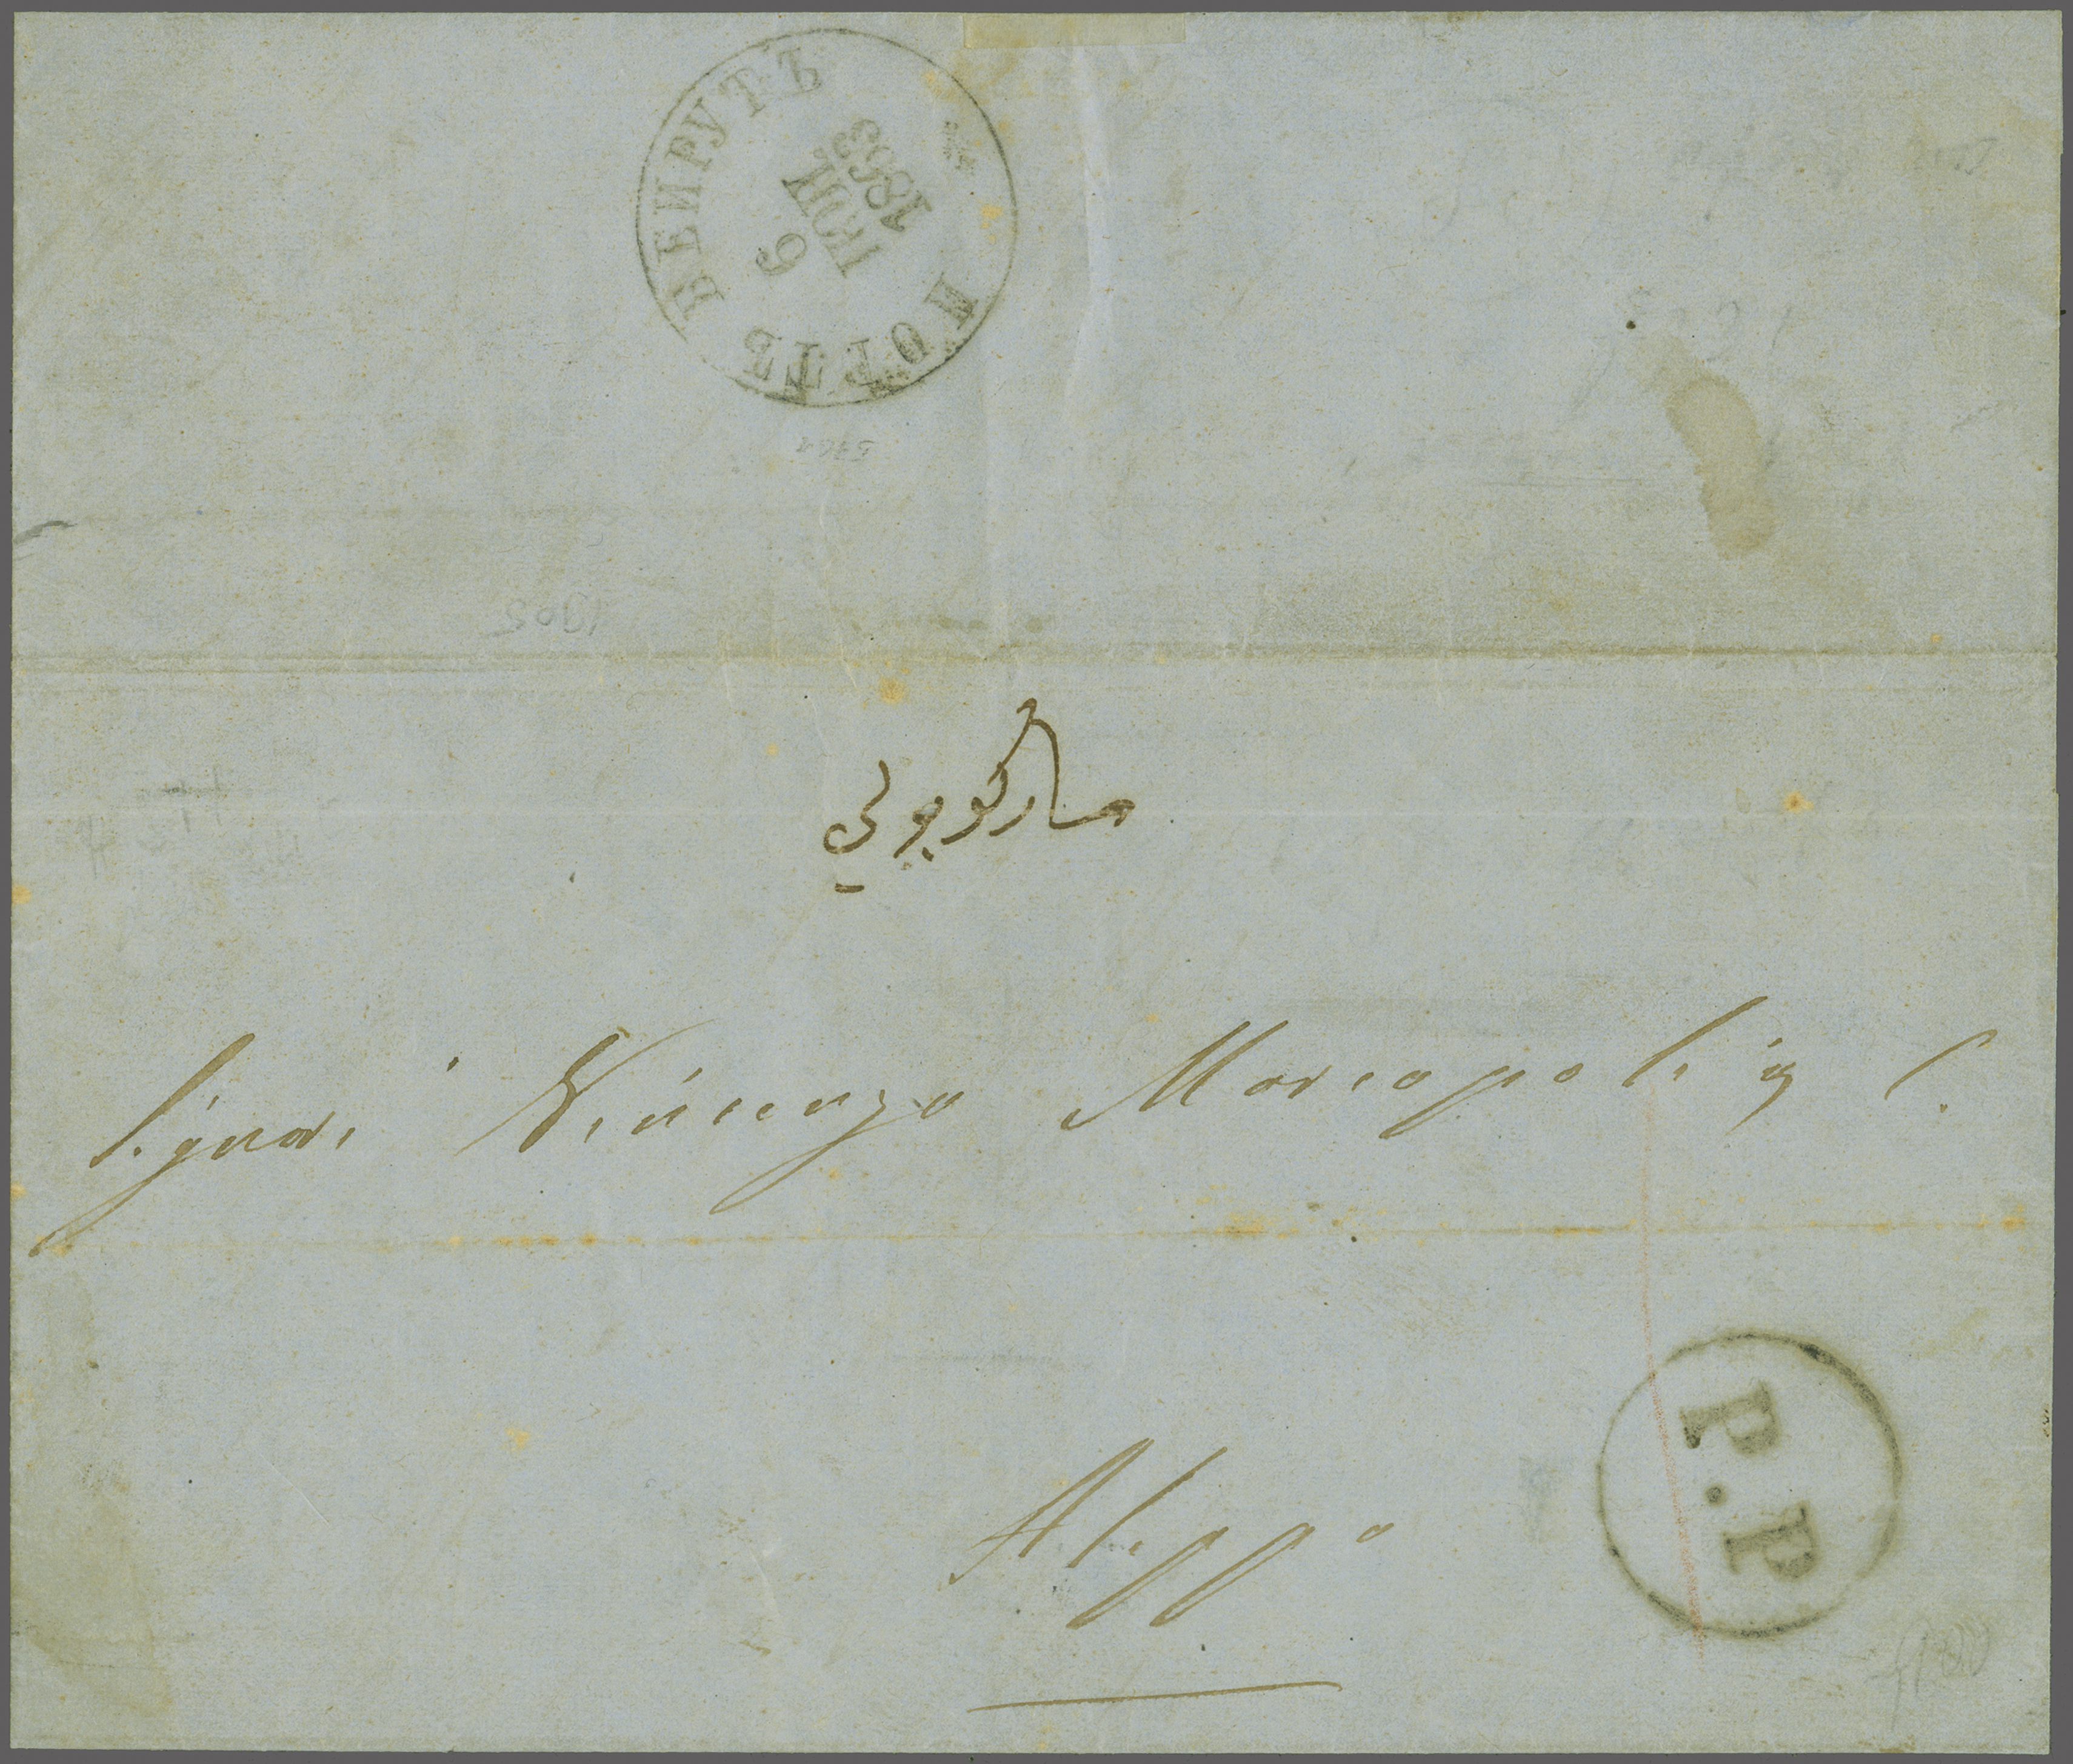 ПОРТЪ БЕИРУТЪ
6
ІЮН.
1863
5761
1905
ماركوپولي
Signori Vincenzo Marcopoli & C.
Aleppo
P.P